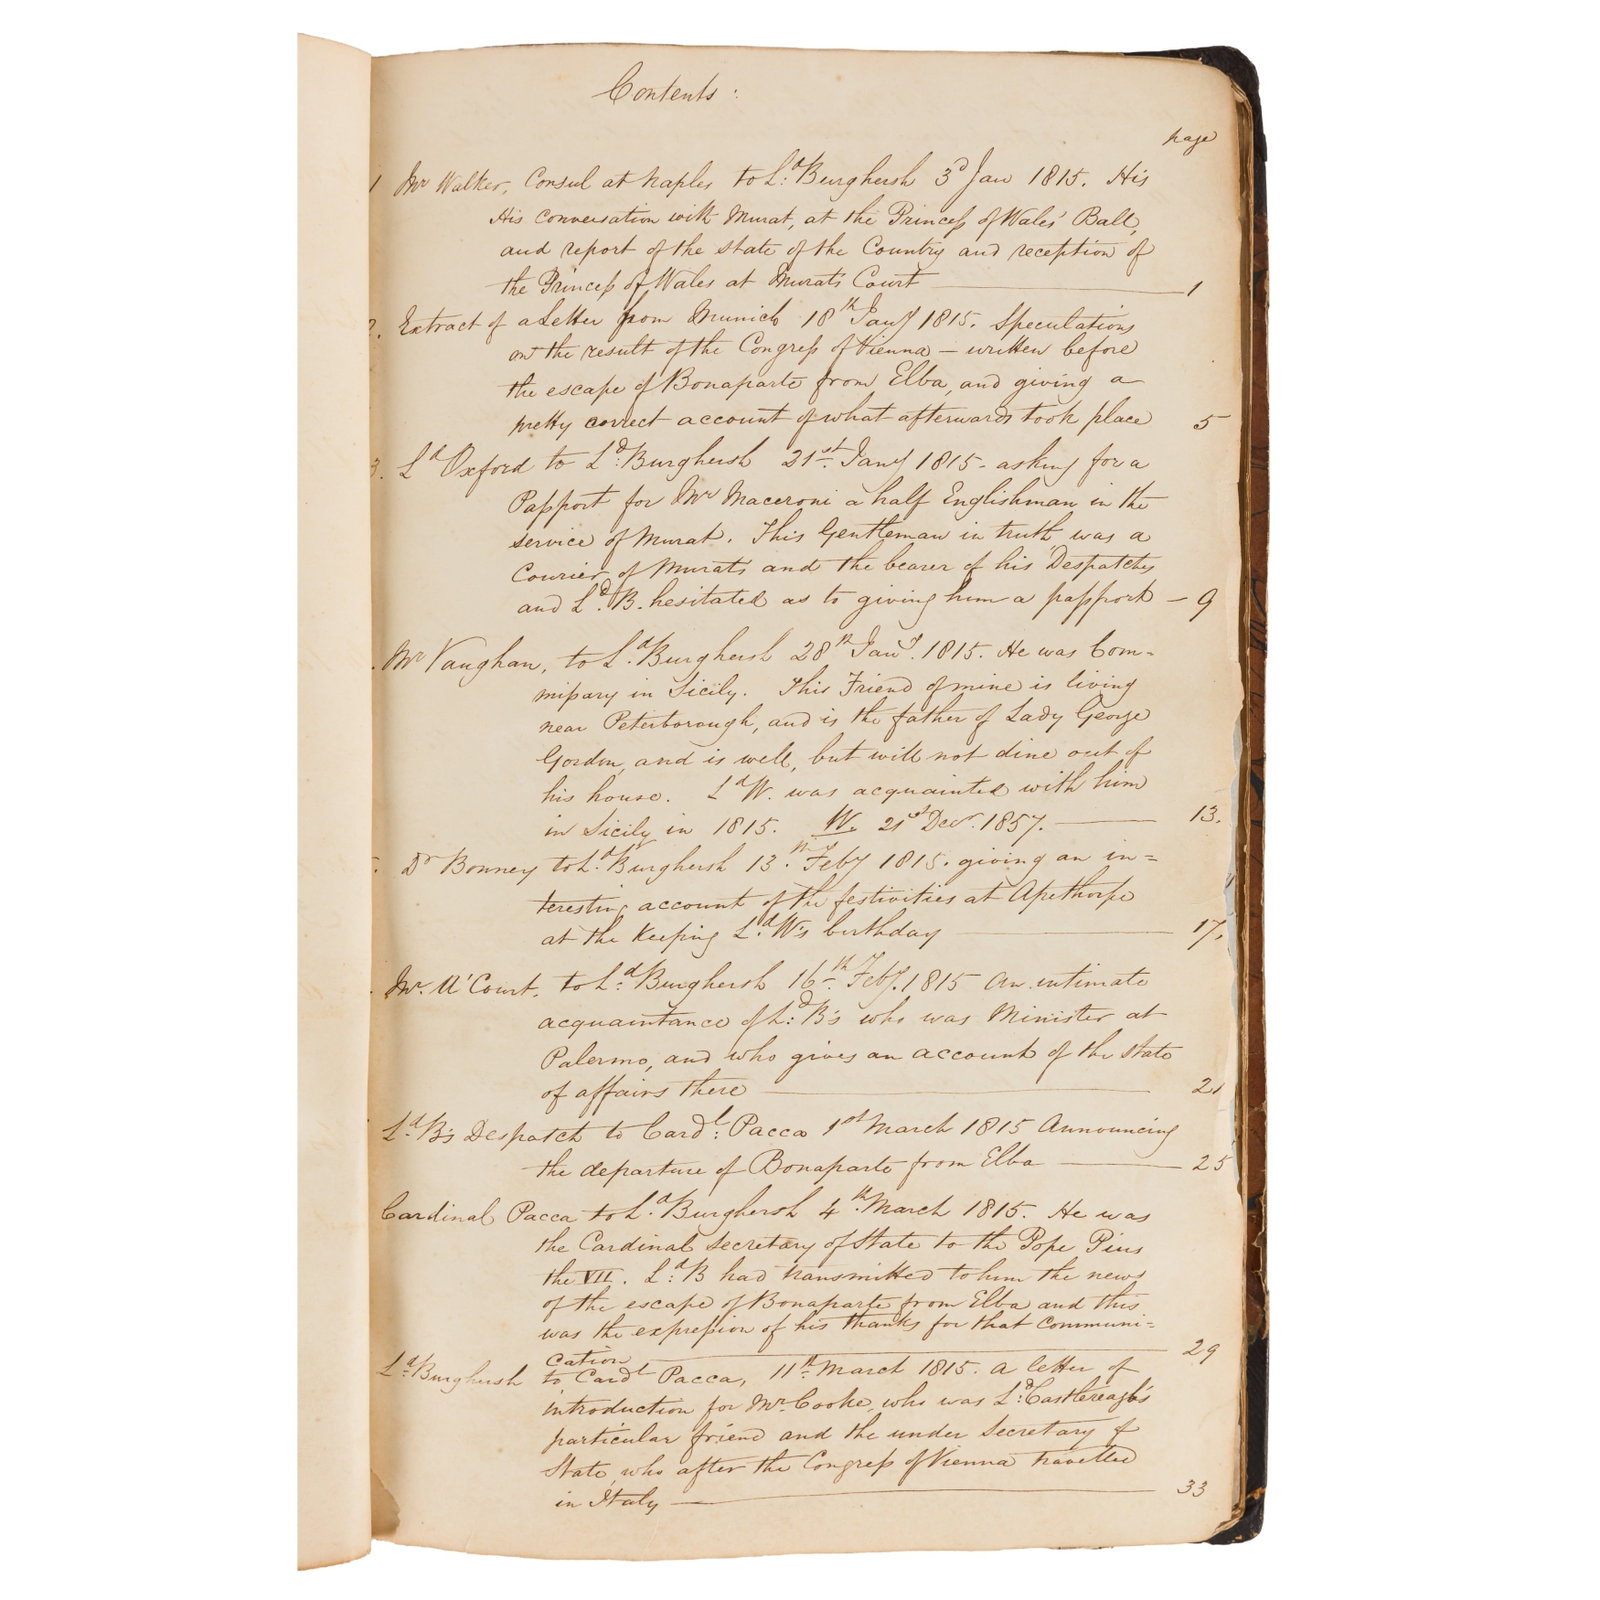 Contents:
page
1 Mr Walker, Consul at Naples to Ld: Burghersh 3d Jan 1815. His
His conversation with Murat, at the Princess of Wales' Ball,
and report of the state of the Country and reception of
the Princess of Wales at Murats Court 1
2. Extract of a Letter from Munich 18th Jany 1815. Speculations
on the result of the Congress of Vienna - written before
the escape of Bonaparte from Elba, and giving a
pretty correct account of what afterwards took place 5
3. Ld Oxford to Ld: Burghersh 21st. Jany 1815 - asking for a
Passport for Mr Maceroni a half Englishman in the
service of Murat. This Gentleman in truth was a
Courier of Murats and the bearer of his Despatches
and Ld. B. hesitated as to giving him a passport - 9
. Mr Vaughan, to Ld. Burghersh 28th Jany. 1815. He was Com-
missary in Sicily. This Friend of mine is living
near Peterborough, and is the father of Lady George
Gordon, and is well, but will not dine out of
his house. Ld W. was acquainted with him
in Sicily in 1815. W. 21st Decr. 1857. 13.
. Dr Bonney to Ld. Burghersh 13.th Feby 1815. giving an in=
teresting account of the festivities at Apethorpe
at the Keeping Ld. W's birthday 17.
. Mr. A'Court. to Ld: Burghersh 16th. Feby. 1815 An intimate
acquaintance of Ld: B's who was Minister at
Palermo, and who gives an account of the state
of affairs there 21
Ld. B's Despatch to Cardl: Pacca 1st March 1815 Announcing
the departure of Bonaparte from Elba 25
Cardinal Pacca to Ld. Burghersh 4th. March 1815. He was
the Cardinal Secretary of State to the Pope Pius
the VII. Ld: B had transmitted to him the news
of the escape of Bonaparte from Elba and this
was the expression of his thanks for that communi=
cation 29
Ld: Burghersh to Cardl Pacca, 11th March 1815. A letter of
introduction for Mr. Cooke, who was Ld: Castlereagh's
particular friend and the under Secretary of
State, who after the Congress of Vienna travelled
in Italy 33